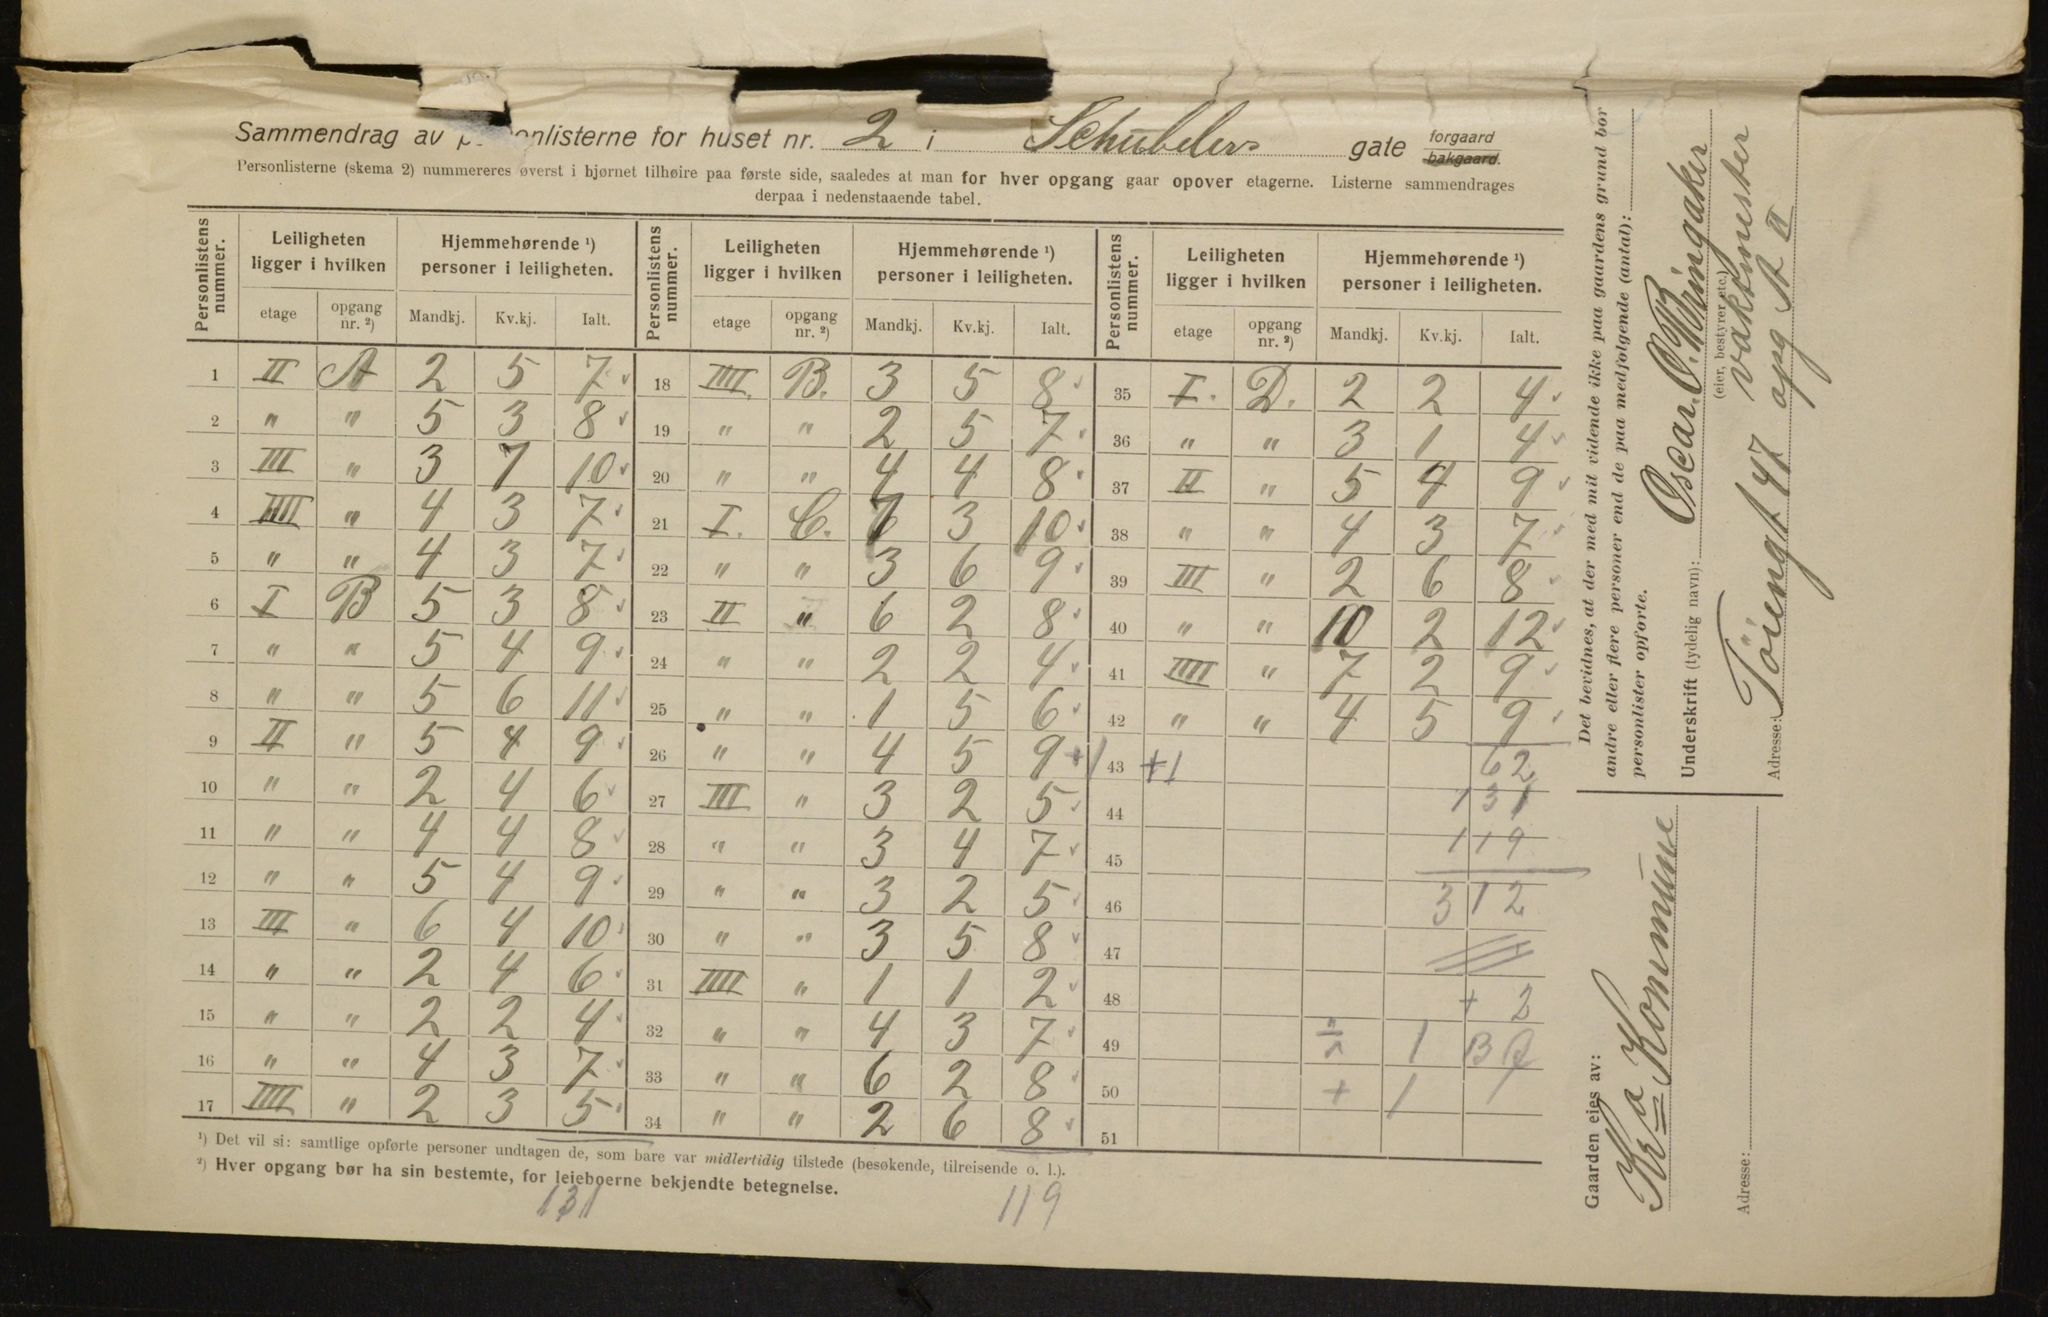 Sammendrag av p onlisterne for huset nr. 2 i Schübelers gate forgaard bakgaard.
Personlisterne (skema 2) nummereres øverst i hjørnet tilhøire paa første side, saaledes at man for hver opgang gaar opover etagerne. Listerne sammendrages
derpaa i nedenstaaende tabel.
Personlistens nummer. Leiligheten ligger i hvilken Hjemmehørende ¹) personer i leiligheten. Personlistens nummer. Leiligheten ligger i hvilken Hjemmehørende ¹) personer i leiligheten. Personlistens nummer. Leiligheten ligger i hvilken Hjemmehørende ¹) personer i leiligheten.
etage opgang nr. ²) Mandkj. Kv.kj. Ialt. etage opgang nr. ²) Mandkj. Kv.kj. Ialt. etage opgang nr. ²) Mandkj. Kv.kj. Ialt.
1 II A 2 5 7 18 IIII. B. 3 5 8 35 I. D. 2 2 4
2 " " 5 3 8 19 " " 2 5 7 36 " " 3 1 4
3 III " 3 7 10 20 " " 4 4 8 37 II " 5 4 9
4 IIII " 4 3 7 21 I. C. 7 3 10 38 " " 4 3 7
5 " " 4 3 7 22 " " 3 6 9 39 III " 2 6 8
6 I B 5 3 8 23 II " 6 2 8 40 " " 10 2 12
7 " " 5 4 9 24 " " 2 2 4 41 IIII " 7 2 9
8 " " 5 6 11 25 " " 1 5 6 42 " " 4 5 9
9 II " 5 4 9 26 " " 4 5 9 +1 43 +1 62
10 " " 2 4 6 27 III " 3 2 5 44 131
11 " " 4 4 8 28 " " 3 4 7 45 119
12 " " 5 4 9 29 " " 3 2 5 46 312
13 III " 6 4 10 30 " " 3 5 8 47
14 " " 2 4 6 31 IIII " 1 1 2 48 + 2
15 " " 2 2 4 32 " " 4 3 7 49 1
16 " " 4 3 7 33 " " 6 2 8 50 + 1
17 IIII " 2 3 5 34 " " 2 6 8 51
¹) Det vil si: samtlige opførte personer undtagen de, som bare var midlertidig tilstede (besøkende, tilreisende o. l.).
²) Hver opgang bør ha sin bestemte, for leieboerne bekjendte betegnelse.
131 119
Det bevidnes, at der med mit vidende ikke paa gaardens grund bor
andre eller flere personer end de paa medfølgende (antal):
personlister opførte.
Underskrift (tydelig navn): Oscar. O. Bringaker
(eier, bestyrer etc.) vaktmester
Adresse: Töiengt 47 opg A II
Gaarden eies av:
Kra Kommune
Adresse: